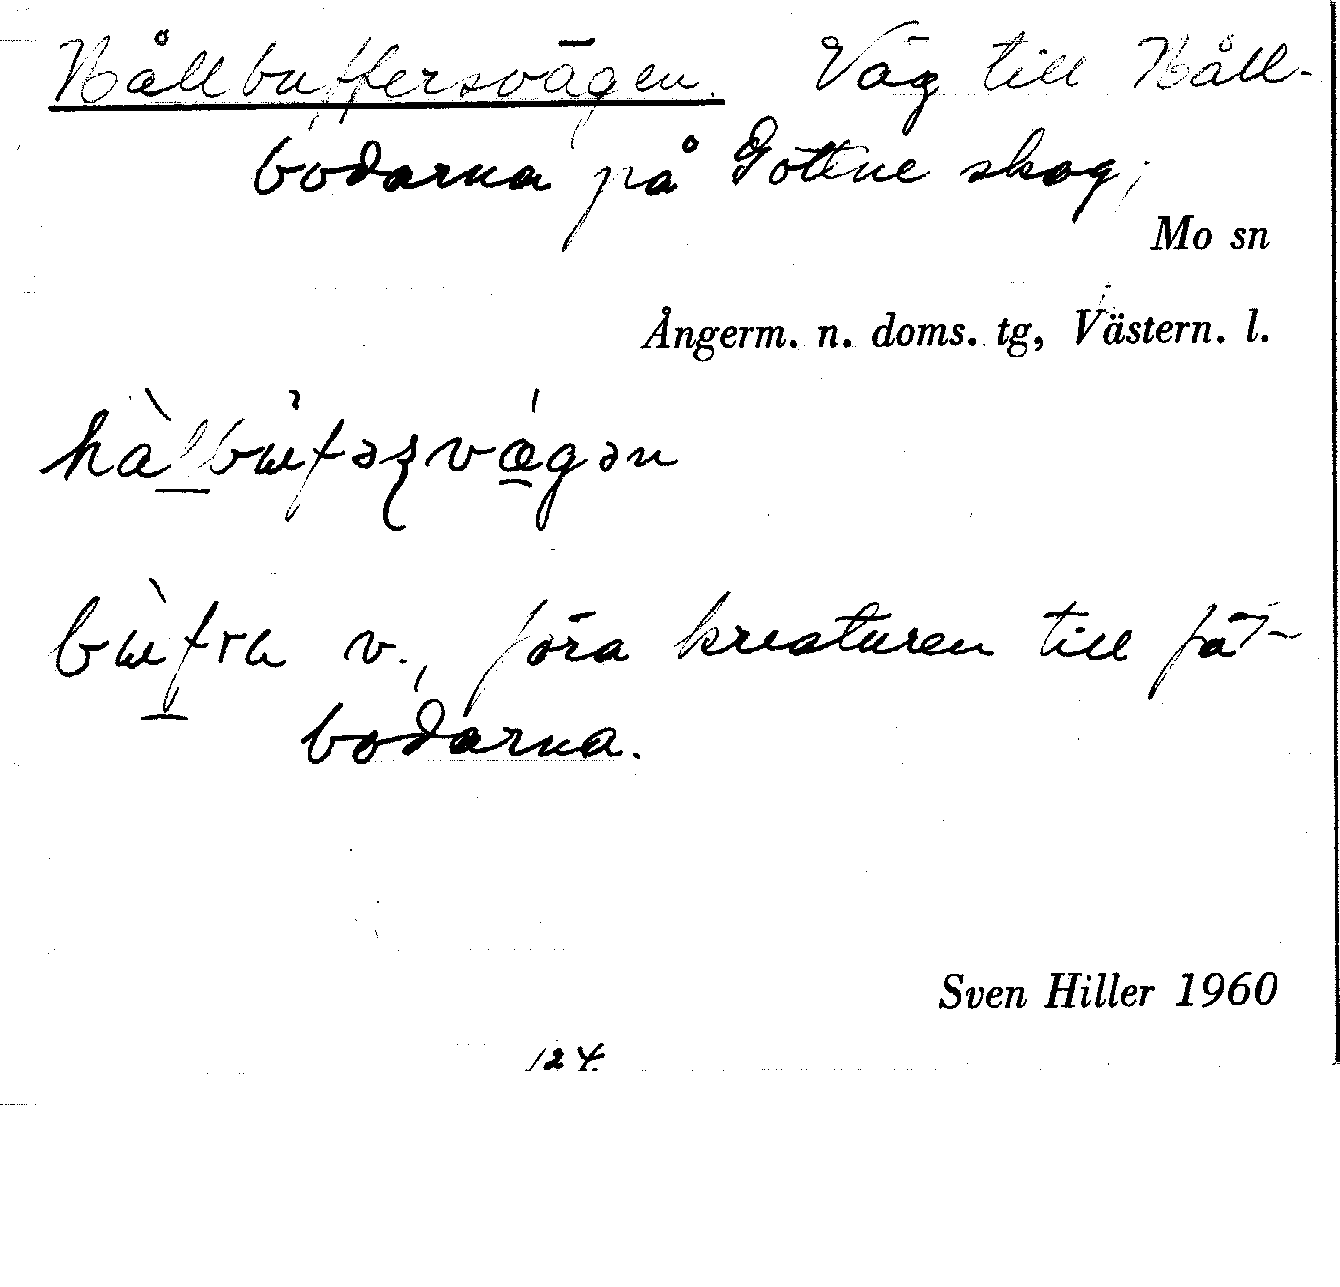 Hållbuffersvägen. Väg till Håll-
bodarna på Gottne skog;
Mo sn
Ångerm. n. doms. tg, Västern. l.
v., föra kreaturen till fä-
bodarna.
Sven Hiller 1960
124.